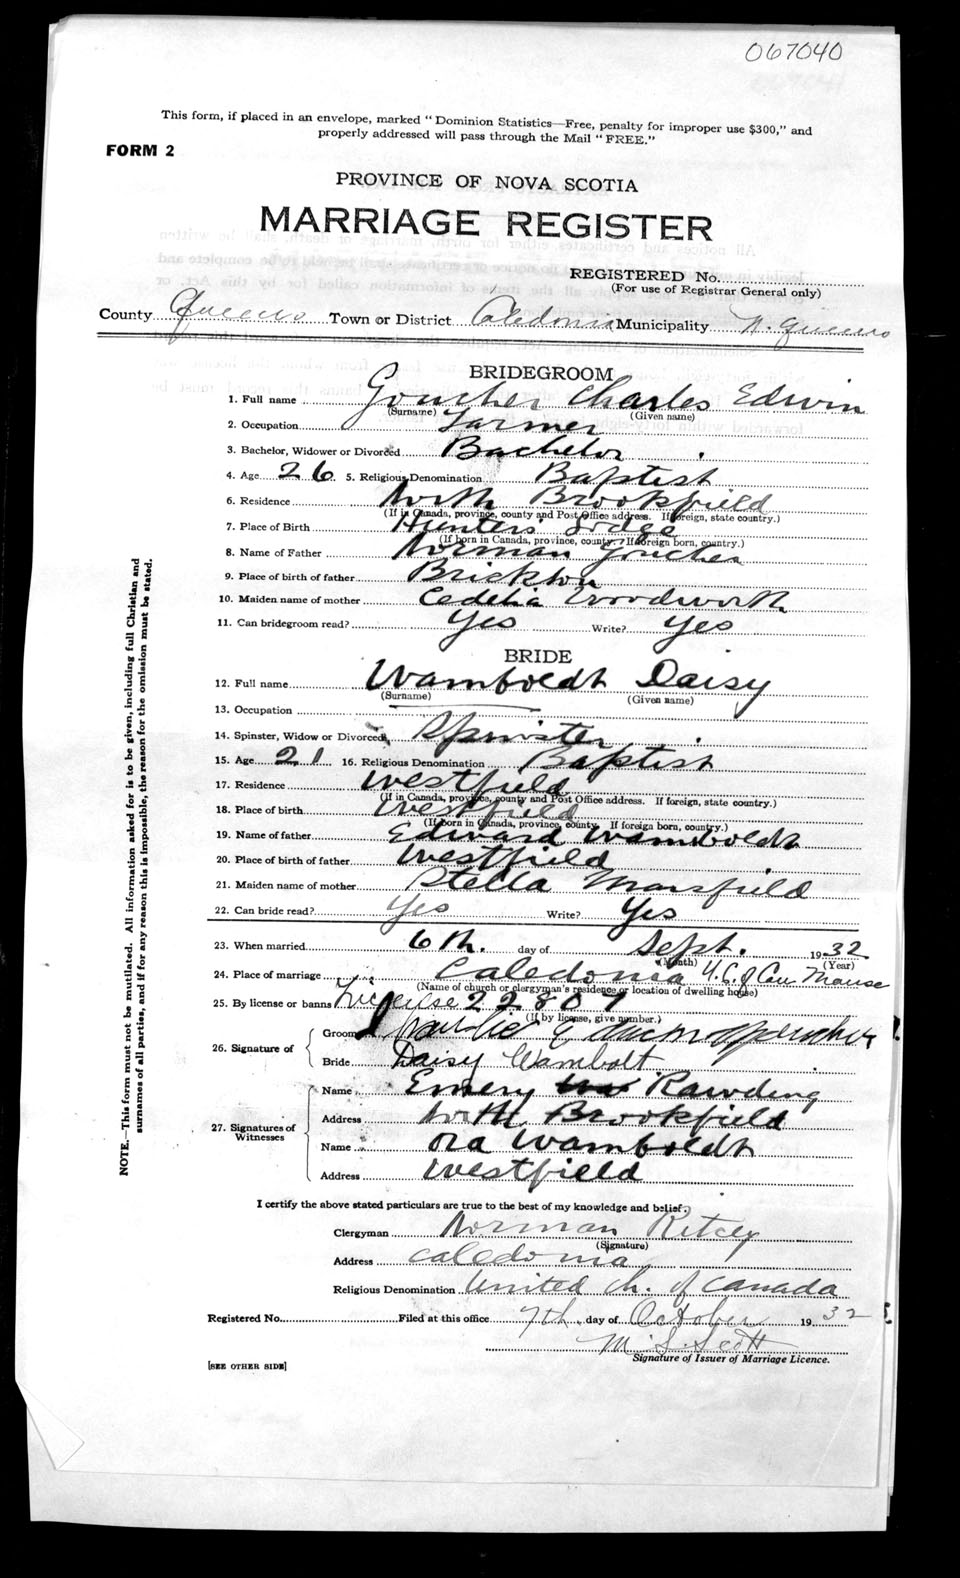 067040
This form, if placed in an envelope, marked "Dominion Statistics—Free, penalty for improper use $300," and
properly addressed will pass through the Mail "FREE."
FORM 2
PROVINCE OF NOVA SCOTIA
MARRIAGE REGISTER
REGISTERED No.
(For use of Registrar General only)
County Queens Town or District Caledonia Municipality N. Queens
BRIDEGROOM
1. Full name Goucher Charles Edwin
(Surname) (Given name)
2. Occupation Farmer
3. Bachelor, Widower or Divorced Bachelor
4. Age 26 5. Religious Denomination Baptist
6. Residence North Brookfield
(If in Canada, province, county and Post Office address. If foreign, state country.)
7. Place of Birth Hunters Lodge
(If born in Canada, province, county. If foreign born, country.)
8. Name of Father Norman Goucher
9. Place of birth of father Brickton
10. Maiden name of mother Cedelia Woodworth
11. Can bridegroom read? Yes Write? Yes
BRIDE
12. Full name Wamboldt Daisy
(Surname) (Given name)
13. Occupation
14. Spinster, Widow or Divorced Spinster
15. Age 21 16. Religious Denomination Baptist
17. Residence Westfield
(If in Canada, province, county and Post Office address. If foreign, state country.)
18. Place of birth Westfield
(If born in Canada, province, county. If foreign born, country.)
19. Name of father Edward Wamboldt
20. Place of birth of father Westfield
21. Maiden name of mother Stella Mansfield
22. Can bride read? Yes Write? Yes
23. When married 6th. day of Sept. 1932
(Month) (Year)
24. Place of marriage Caledonia U.C. of Can Manse
(Name of church or clergyman's residence or location of dwelling house)
25. By license or banns License 22807
(If by license, give number.)
26. Signature of Groom
Bride Daisy Wambolt
27. Signatures of Witnesses
Name Emery Rawding
Address North Brookfield
Name Ora Wamboldt
Address Westfield
I certify the above stated particulars are true to the best of my knowledge and belief.
Clergyman Norman Ritcey
(Signature)
Address Caledonia
Religious Denomination United Ch. of Canada
Registered No. Filed at this office 7th. day of October 1932
M. S. Scott
Signature of Issuer of Marriage Licence.
[SEE OTHER SIDE]
NOTE.—This form must not be mutilated. All information asked for is to be given, including full Christian and
surnames of all parties, and if for any reason this is impossible, the reason for the omission must be stated.